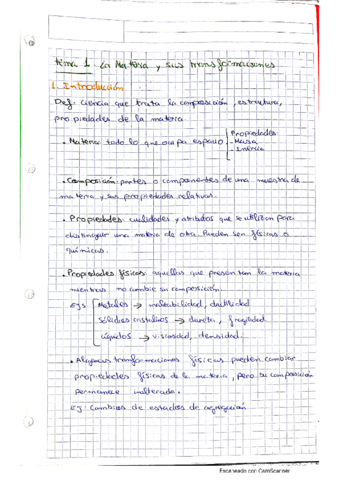 tema 1. La Materia y sus transformaciones
1. Introducción
Def: ciencia que trata la composición, estructura,
propiedades de la materia
· Materia: todo lo que ocupa espacio
Propiedades:
- Masa
- Inercia
· Composición: partes o componentes de una muestra de
materia y sus proporciones relativas.
· Propiedades: cualidades y atributos que se utilizan para
distinguir una materia de otra. Pueden ser físicas o
químicas.
· Propiedades físicas: aquellas que presentan la materia
mientras no cambie su composición.
Ej: Metales → maleabilidad, ductilidad
Sólidos cristalinos → dureza, fragilidad
Líquidos → viscosidad, densidad.
· Algunas transformaciones físicas pueden cambiar
propiedades físicas de la materia, pero su composición
permanece inalterada.
Ej: Cambios de estados de agregación
Escaneado con CamScanner